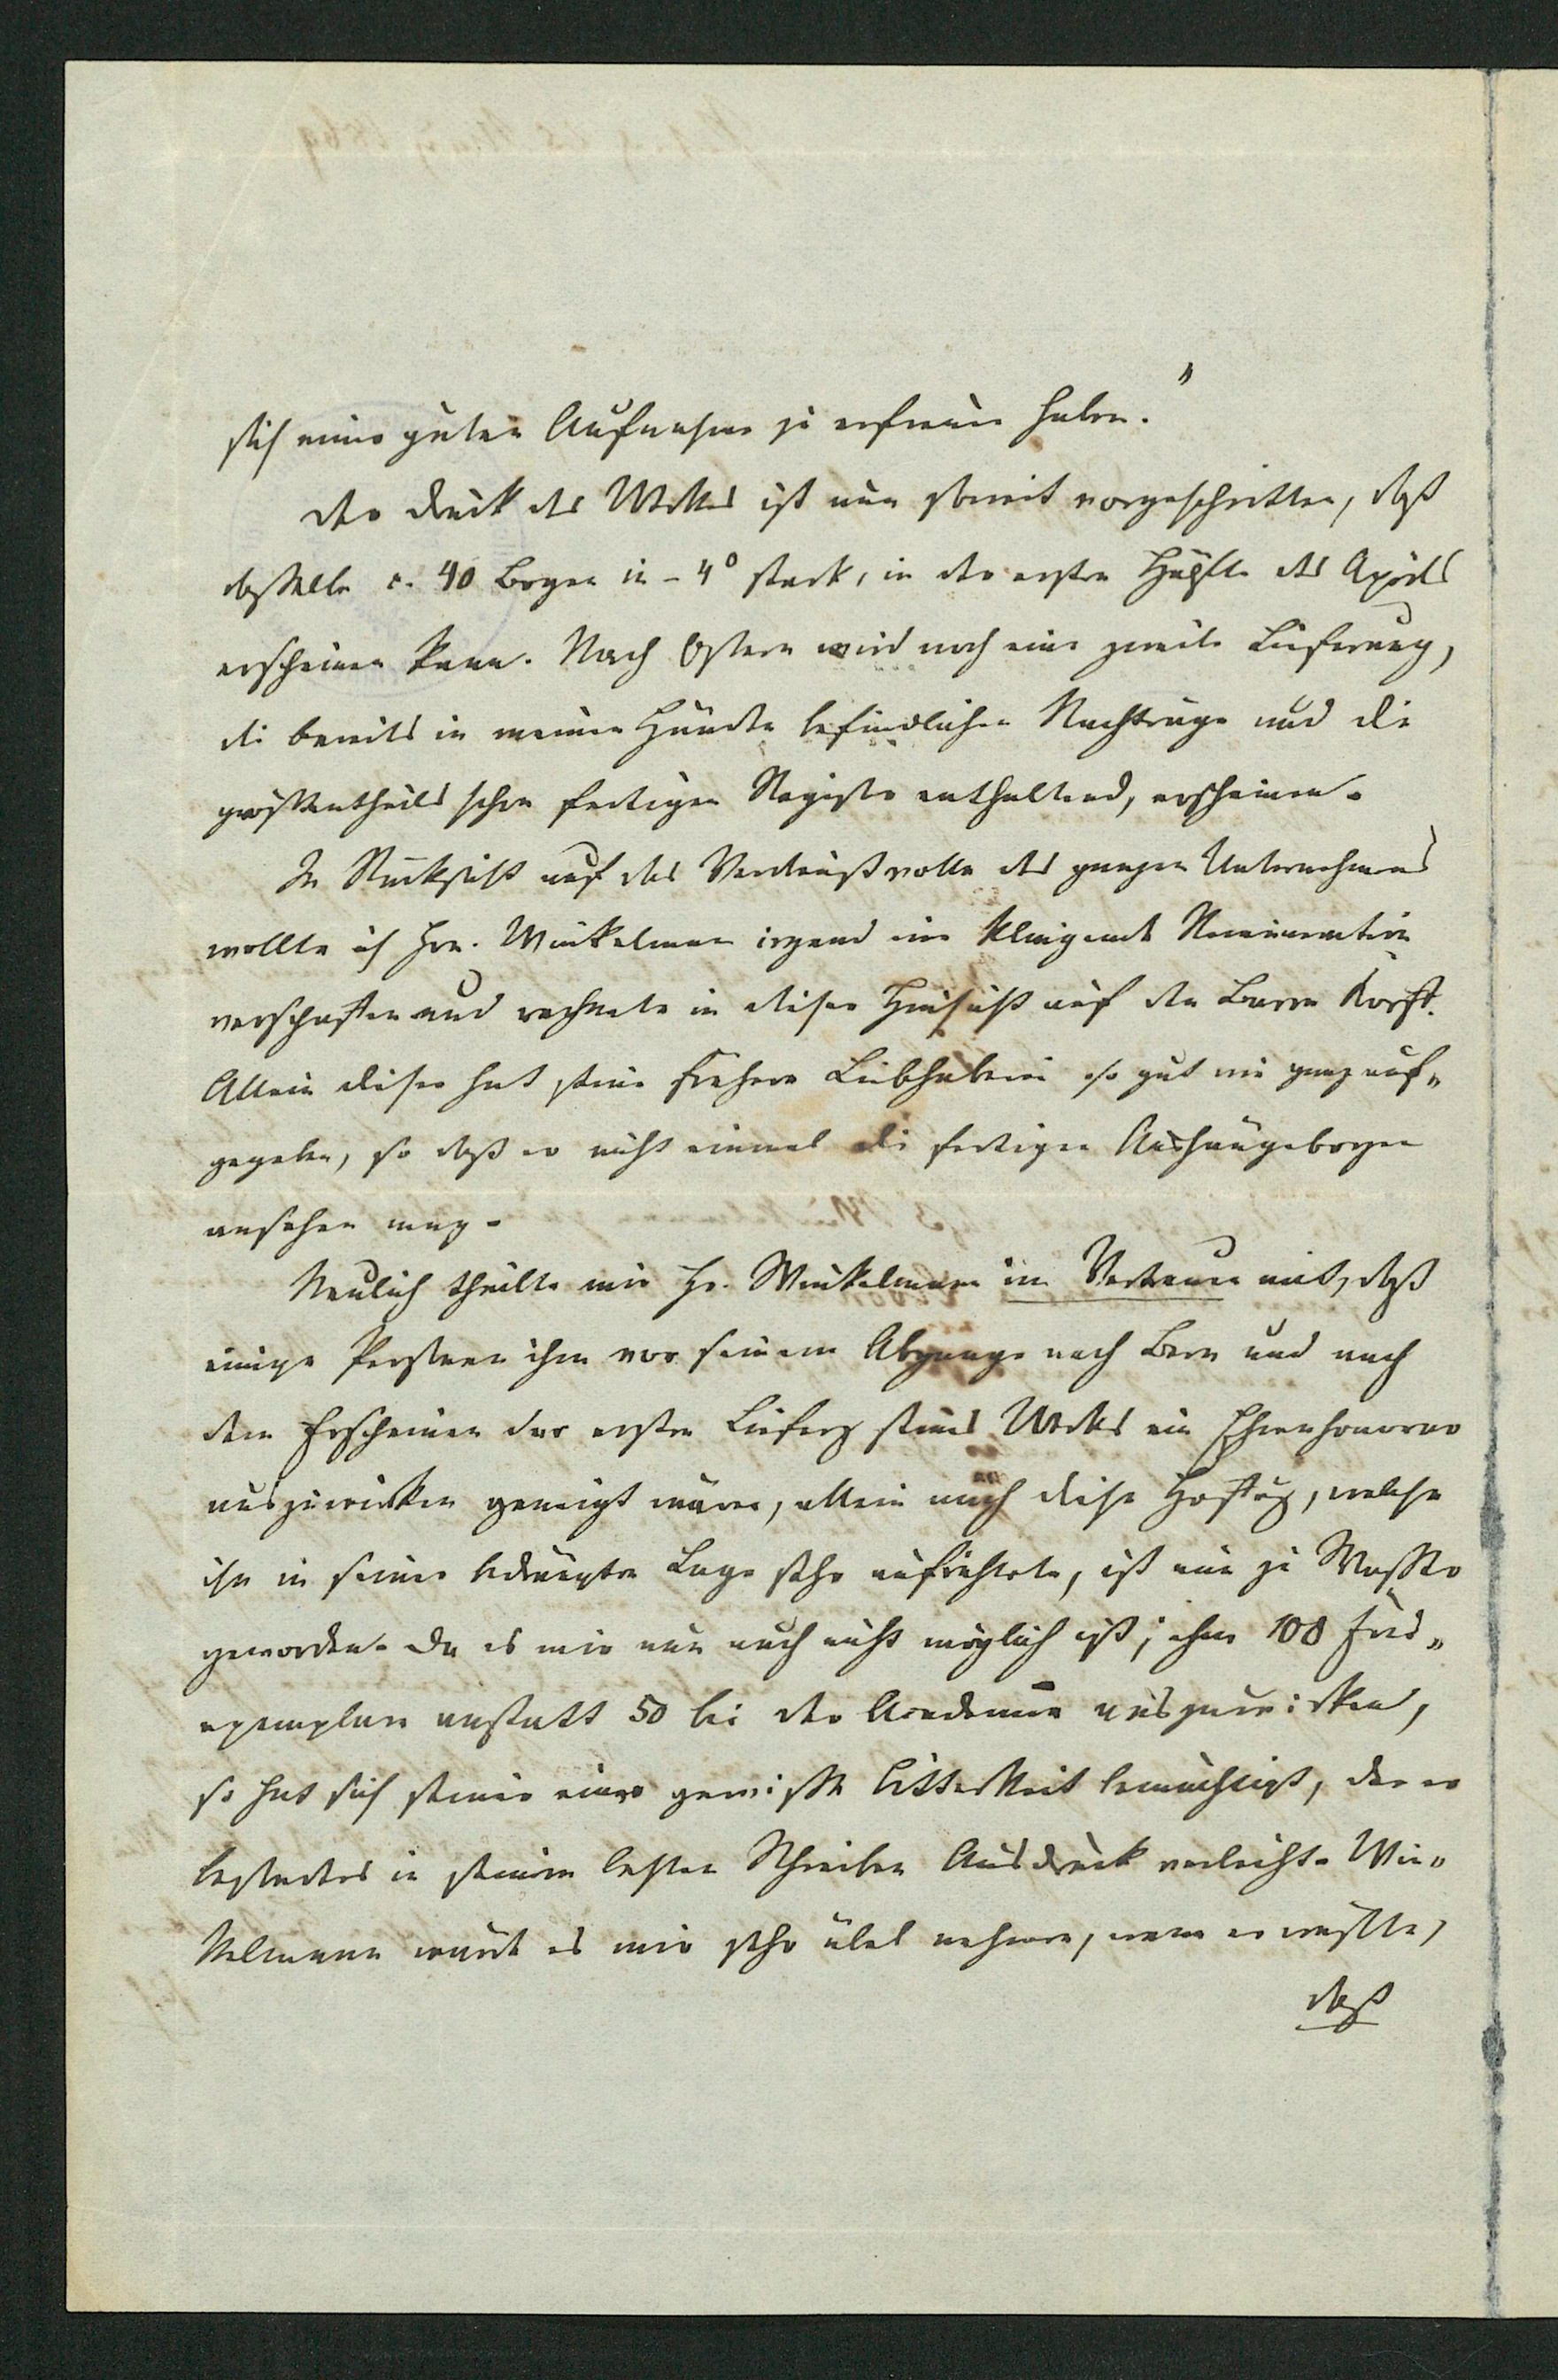 sich einer guten Aufnahme zu erfreuen haben."
Der Druck des Werkes ist nun soweit vorgeschritten, daß
dasselbe c. 40 Bogen in-4° stark, in der ersten Hälfte des Aprils
erscheinen kann. Nach Ostern wird noch eine zweite Lieferung,
die bereits in meinen Händen befindlichen Nachträge und die
größtentheils schon fertigen Register enthaltend, erscheinen.
In Rücksicht auf das Verdienstvolle des ganzen Unternehmens
wollte ich Hrn. Winkelmann irgend eine klingende Remuneration
verschaffen und rechnete in dieser Hinsicht auf den Baron Korff.
Allein dieser hat seine frühere Liebhaberei so gut wie ganz auf-
gegeben, so daß er nicht einmal die fertigen Aushängebogen
ansehen mag.
Neulich theilte mir Hr. Winkelmann im Vertrauen mit, daß
einige Personen ihm vor seinem Abgange nach Bern und nach
dem Erscheinen der ersten Lieferg seines Werkes ein Ehrenhonorar
auszuwirken geneigt wären, allein auch diese Hoffng, welche
ihn in seiner bedrängten Lage sehr aufrichtete, ist nun zu Wasser
geworden. Da es mir nun auch nicht möglich ist, ihm 100 Frei-
exemplare anstatt 50 bei der Academie auszuwirken,
so hat sich seiner eine gewisse Bitterkeit bemächtigt, der er
besonders in seinem letzten Schreiben Ausdruck verleiht. Win-
kelmann würde es mir sehr übel nehmen, wenn er wüßte,
daß